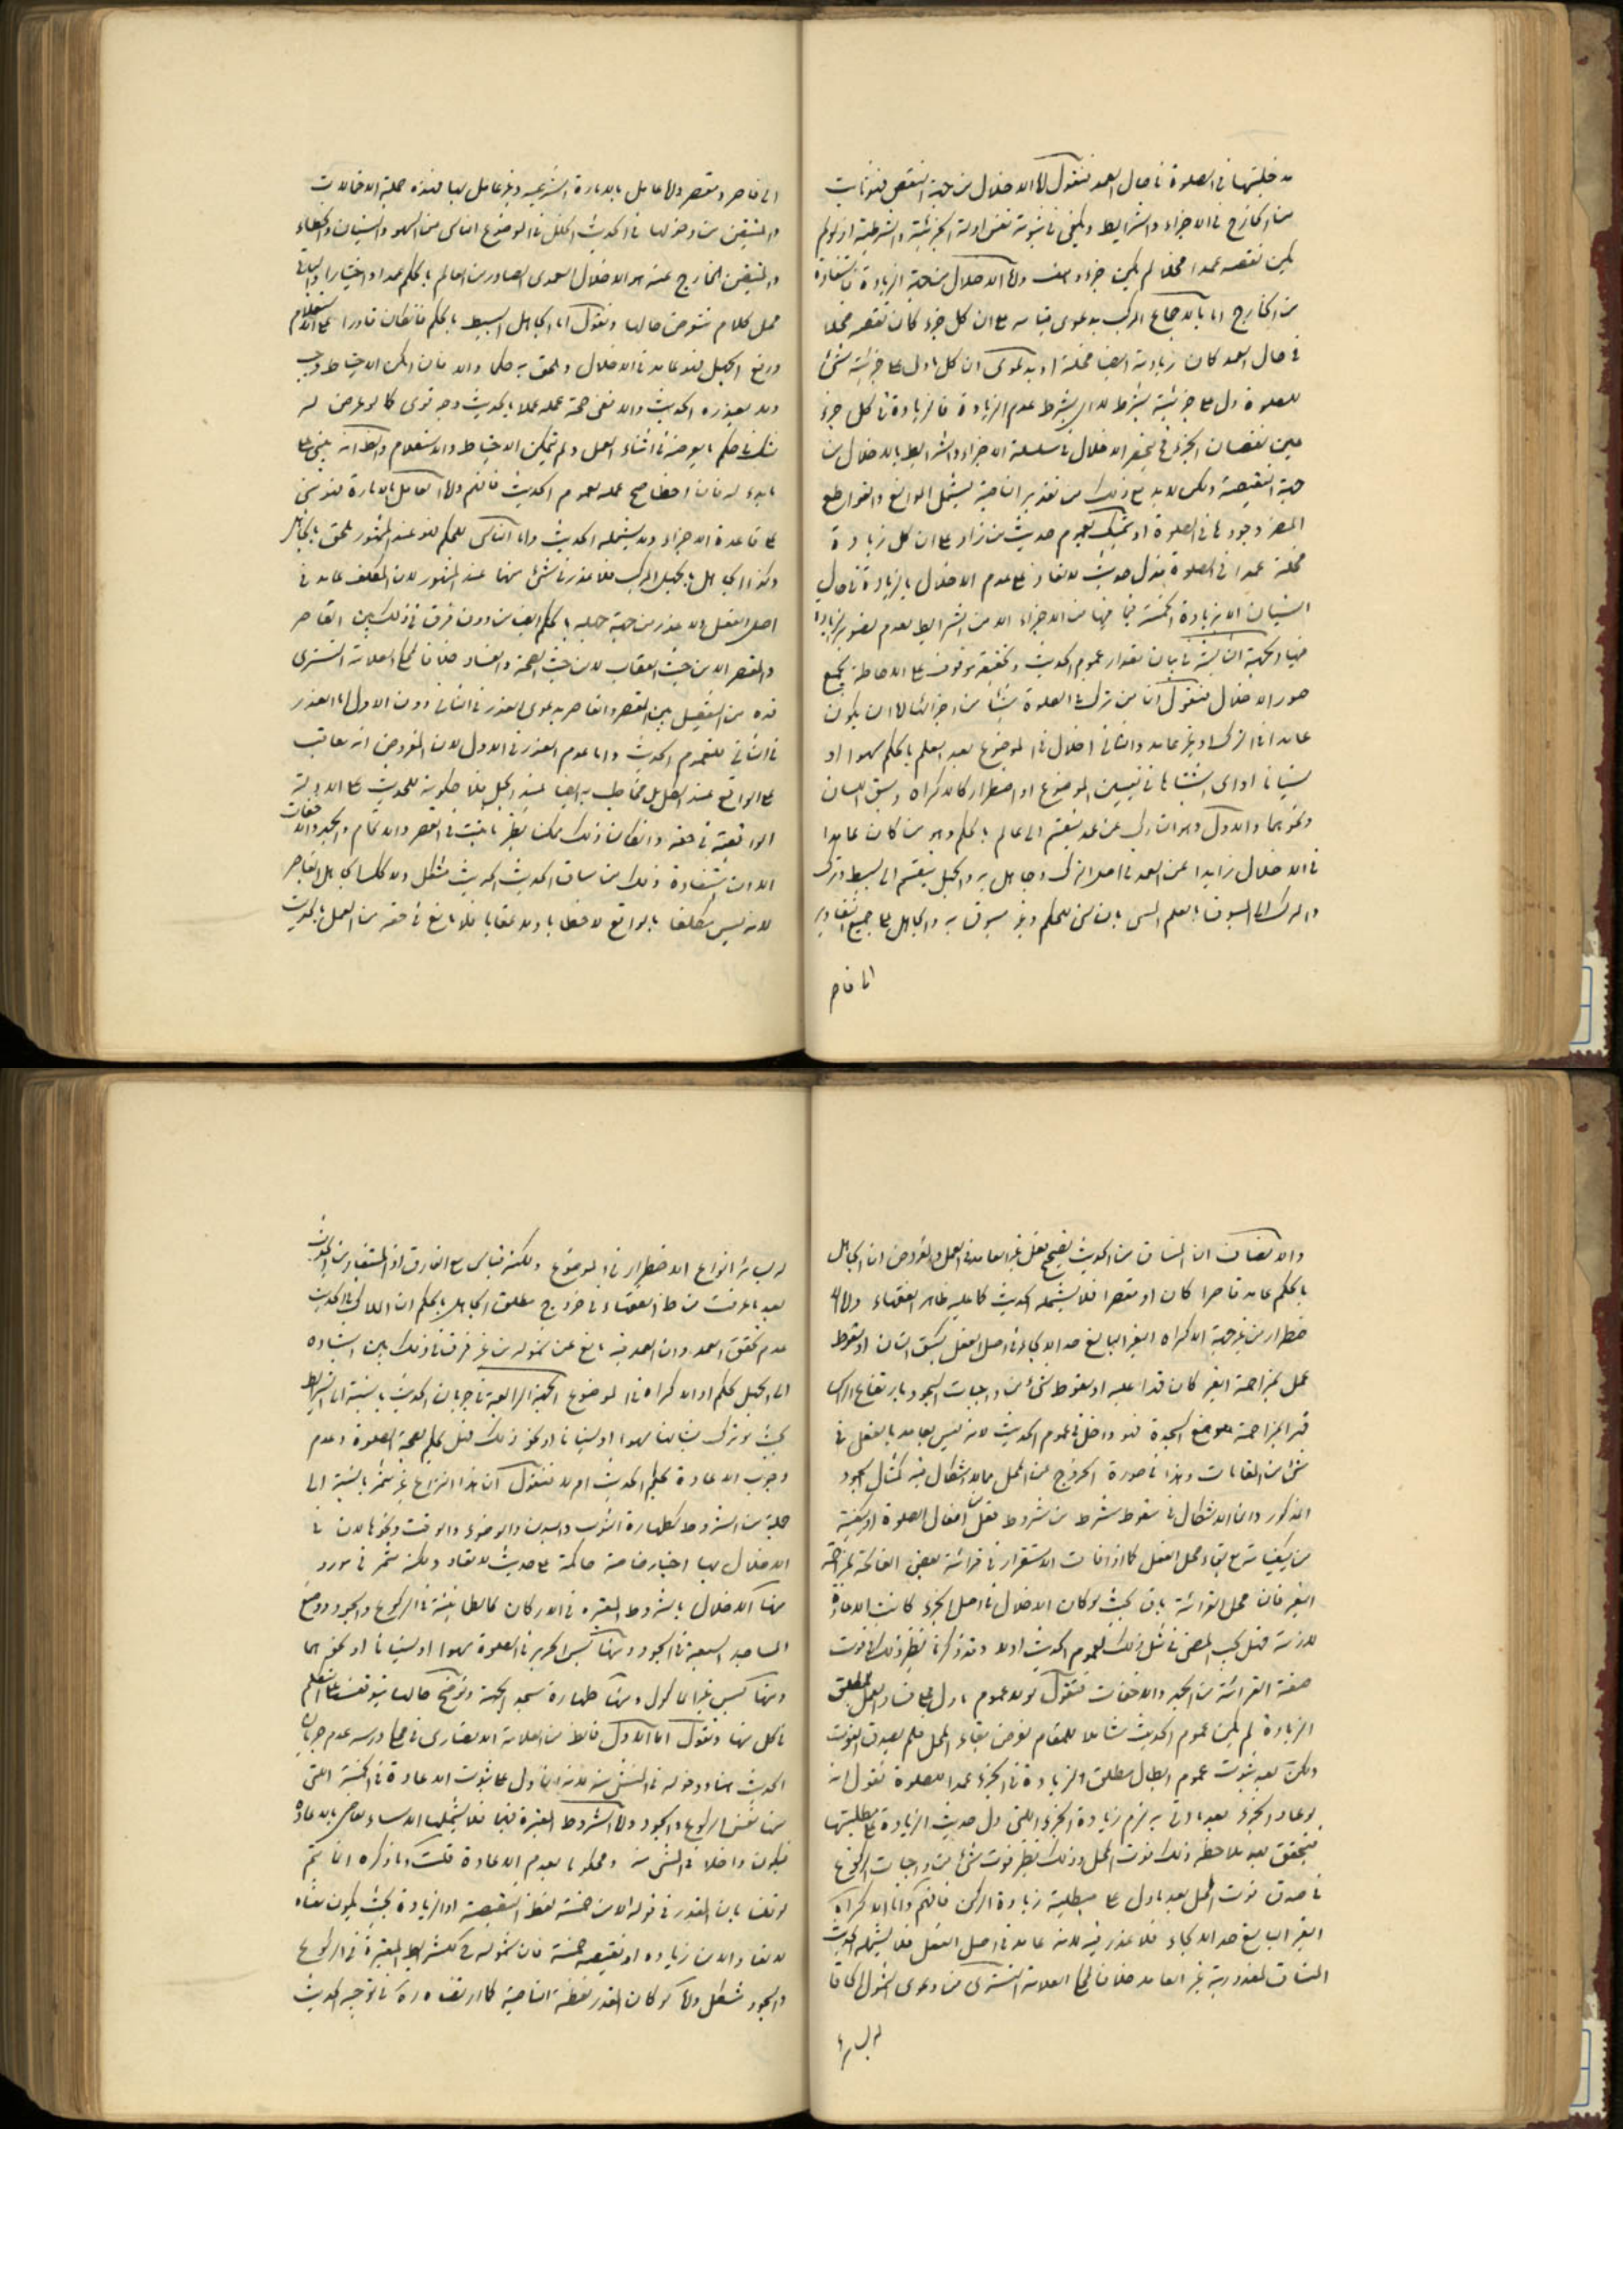 مدخليتها في الصلوة في حال العمد فنقول اما الاخلال من جهة النقص فهو ثابت
من الخارج في الاجزاء والشرايط ويكفي في ثبوته نفس ادلة الجزئية والشرطية اذ لو لم
يكن نقصه عمدا مخلا لم يكن جزء وهف واما الاخلال من جهة الزيادة فاستفادة
من الخارج اما بالاجماع المركب بدعوى قيامه على ان كل جزء كان نقصه مخلا
في حال العمد كان زيادته ايضا مخلة او بدعوى ان كل ما دل على جزئية شئ
للصلوة دل على جزئية بشرط لا اي بشرط عدم الزيادة فالزيادة في كل جزء
عين نقصان الجزء فينحصر الاخلال في سلسلة الاجزاء والشرايط بالاخلال من
جهة النقيصة ولكن لابد مع ذلك من تقدير الناحية ليشمل الموانع والقواطع
المضر وجودها في الصلوة او بتمسك بعموم حديث من زاد على ان كل زيادة
مخلة عمدا في الصلوة فدل حديث لا تعاد على عدم الاخلال بالزيادة في حال
النسيان الا بزيادة الخمسة فيما فيها من الاجزاء الا من الشرايط لعدم تصوير الزيادة
فيها والجهة الثانية في بيان مقدار عموم الحديث وتحقيقه موقوف على الاحاطة بجميع
صور الاخلال فنقول ان من ترك في الصلوة شيئا من اجزائها اما ان يكون
عامدا في الترك او غير عامد والثاني اخلال في الموضوع بعد العلم بالحكم سهوا او
نسيانا او اي اشتباها في تعيين الموضوع او اضطرار كالاكراه وسبق اللسان
ونحوهما والاول وهو التارك عن عمد ينقسم الى عالم بالحكم وهو من كان عامدا
في الاخلال زايدا عن العمد في اصل الترك وجاهل به والجهل ينقسم الى بسيط ومركب
والمركب الى المسبوق بالعلم المسمى بالناسي للحكم وغير مسبوق به والجاهل على جميع التقادير
اما قاصر
الى قاصر ومقصر واما عامل بالامارة الشرعية وغير عامل بها فهذه جملة الاخالات
والمتيقن من دخولها في الحديث الخلل في الموضوع الناشي من السهو والنسيان والخطاء
والمتيقن الخارج عنه هو الاخلال العمدي الصادر من العالم بالحكم عمدا واختيارا والباقي
محل كلام نتعرض حالها ونقول اما الجاهل البسيط بالحكم فان كان قادرا على الاستعلام
ورفع الجهل فهو عامد في الاخلال وملحق به حكما والا فان امكن الاحتياط وجب
ولا يعذره الحديث والا ففي صحة عمله عملا بالحديث وجه قوي كما لو عرض له
شك في حكم ما يعرضه في اثناء العمل ولم يتمكن الاحتياط والاستعلام والظ انه يبني على
ما بدء له فان اخطا صح عمله لعموم الحديث فافهم واما العامل بالامارة فمبني
على قاعدة الاجزاء ولا يشمله الحديث واما الناسي للحكم فهو عند المشهور ملحق بالجاهل
وكذا الجاهل بالجهل المركب فلا عذر في شئ منها عند المشهور لان المكلف عامد في
اصل الفعل ولا عذر من جهة جهله بالحكم ايضا من دون فرق في ذلك بين القاصر
والمقصر الا من حيث العقاب لا من حيث الصحة والفساد خلافا لما حكى العلامة التستري
قده من التفصيل بين المقصر والقاصر بدعوى العذر في الثاني دون الاول اما العذر
في الثاني فلعموم الحديث واما عدم العذر في الاول لان المفروض انه يعاقب
على الواقع عند الكل بل مخاطب به ايضا عند الجل فلا حكومة للحديث على الادلة
الواقعية في حقه وان كان ذلك ممكنا نظير ما يثبت في القصر والاتمام والجهر والاخفات
الا ان استفادة ذلك من سياق الحديث الحديث مشكل ولا كذلك الجاهل القاصر
لانه ليس مكلفا بالواقع لا خطابا ولا عقابا فلا مانع في حقه من العمل بالحديث
والانصاف ان المنساق من الحديث تصحيح فعل غير العامد في العمل والمفروض ان الجاهل
بالحكم عامد قاصرا كان او مقصرا فلا يشمله الحديث كما عليه ظاهر الفقهاء واما الا
ضطرار من غير جهة الاكراه الغير البالغ حد الالجاء في اصل الفعل كسبق اللسان او سقوط
عمل لمزاحمة الغير كان قدا عليه او سقوط شئ من واجبات السجود بارتفاع الراس
قهرا لمزاحمة موضع السجدة فهو داخل في عموم الحديث لانه ليس بعامد بالفعل في
شئ من المقامات وهذا في صورة الخروج عن المحل مما لا اشكال فيه كمثال السجود
المذكور وانما الاشكال في سقوط شرط من شروط فعل من افعال الصلوة او كيفية
من كيفياته مع بقاء محل الفعل كما اذا فات الاستقرار في قرائة بعض الفاتحة لمزاحمة
الغير فان محل القرائة باق بحيث لو كان الاخلال في اصل الجزء كانت الاعادة
لازمة فهل يجب المضي في مثل ذلك لعموم الحديث او لا وقد ذكرنا نظير ذلك في فوت
صفة القرائة من الجهر والاخفات فنقول لولا عموم ما دل على فساد العمل بمطلق
الزيادة لم يكن عموم الحديث شاملا للمقام لفرض بقاء المحل فلم يصدق الفوت
ولكن بعد ثبوت عموم ابطال مطلق الزيادة في الجزء عمدا للصلوة نقول انه
لو عاد الجزء بعد ما اتى به لزم زيادة الجزء اللتي دل حديث الزيادة على مبطليتها
فيتحقق بعد ملاحظة ذلك فوت المحل وذلك نظير فوت شئ من واجبات الركوع
في صدق فوت المحل بعد ما دل على مبطلية زيادة الركن فافهم واما الاكراه
الغير البالغ حد الالجاء فلا عذر فيه لانه عامد في اصل الفعل فلا يشمله الحديث
المنساق لمعذورية غير العامد خلافا لما حكى العلامة التستري من دعوى الشمول الحاقا
له بسائر
له بسائر انواع الاضطرار في الموضوع ولكنه قياس مع الفارق اذ المستفاد من الحديث
بعد ما عرفت من ظ الفقهاء في خروج مطلق الجاهل بالحكم ان الملاك في الحديث
عدم تحقق العمد وان العمد فيه مانع عن شموله من غير فرق في ذلك بين استناده
الى الجهل بالحكم او الاكراه في الموضوع الجهة الرابعة في جريان الحديث بالنسبة الى الشرايط
بحيث لو ترك شيئا منها سهوا او نسيانا او نحو ذلك فهل يحكم بصحة الصلوة وعدم
وجوب الاعادة بحكم الحديث ام لا فنقول ان هذا النزاع غير مثمر بالنسبة الى
جملة من الشروط كطهارة الثوب والبدن والوضوء والوقت ونحوها لان في
الاخلال بها اخبار خاصة حاكمة على حديث لا تعاد ولكنه مثمر في موارد
منها الاخلال بالشروط المعتبره في الاركان كالطمانينة في الركوع والسجود ووضع
المساجد السبعة في السجود ومنها لبس الحرير في الصلوة سهوا او نسيانا او نحوهما
ومنها لبس غير الماكول ومنها طهارة مسجد الجبهة وتوضيح حالها يتوقف على التكلم
في كل منها ونقول اما الاول فالظ من العلامة الانصاري في مجلس درسه عدم جريان
الحديث هنا ودخوله في المستثنى منه لانه انما دل على ثبوت الاعادة في الخمسة اللتي
منها نفس الركوع والسجود واما الشروط المعتبرة فيها فلا يشملها الاستثناء القاضي بالاعادة
فيكون داخلا في المستثنى منه ومحكوما بعدم الاعادة قلت وما ذكره انما يتم
لو قلنا بان المقدر في قوله الا من خمسة لفظ النقيصة او الزيادة بحيث يكون معناه
لا تعاد الا من زيادة او نقيصة خمسة فان شموله ح لمثل الشرايط المعتبرة في الركوع
والسجود مشكل واما لو كان المقدر لفظة الناحية كما ارتضاه ره في توجيه الحديث